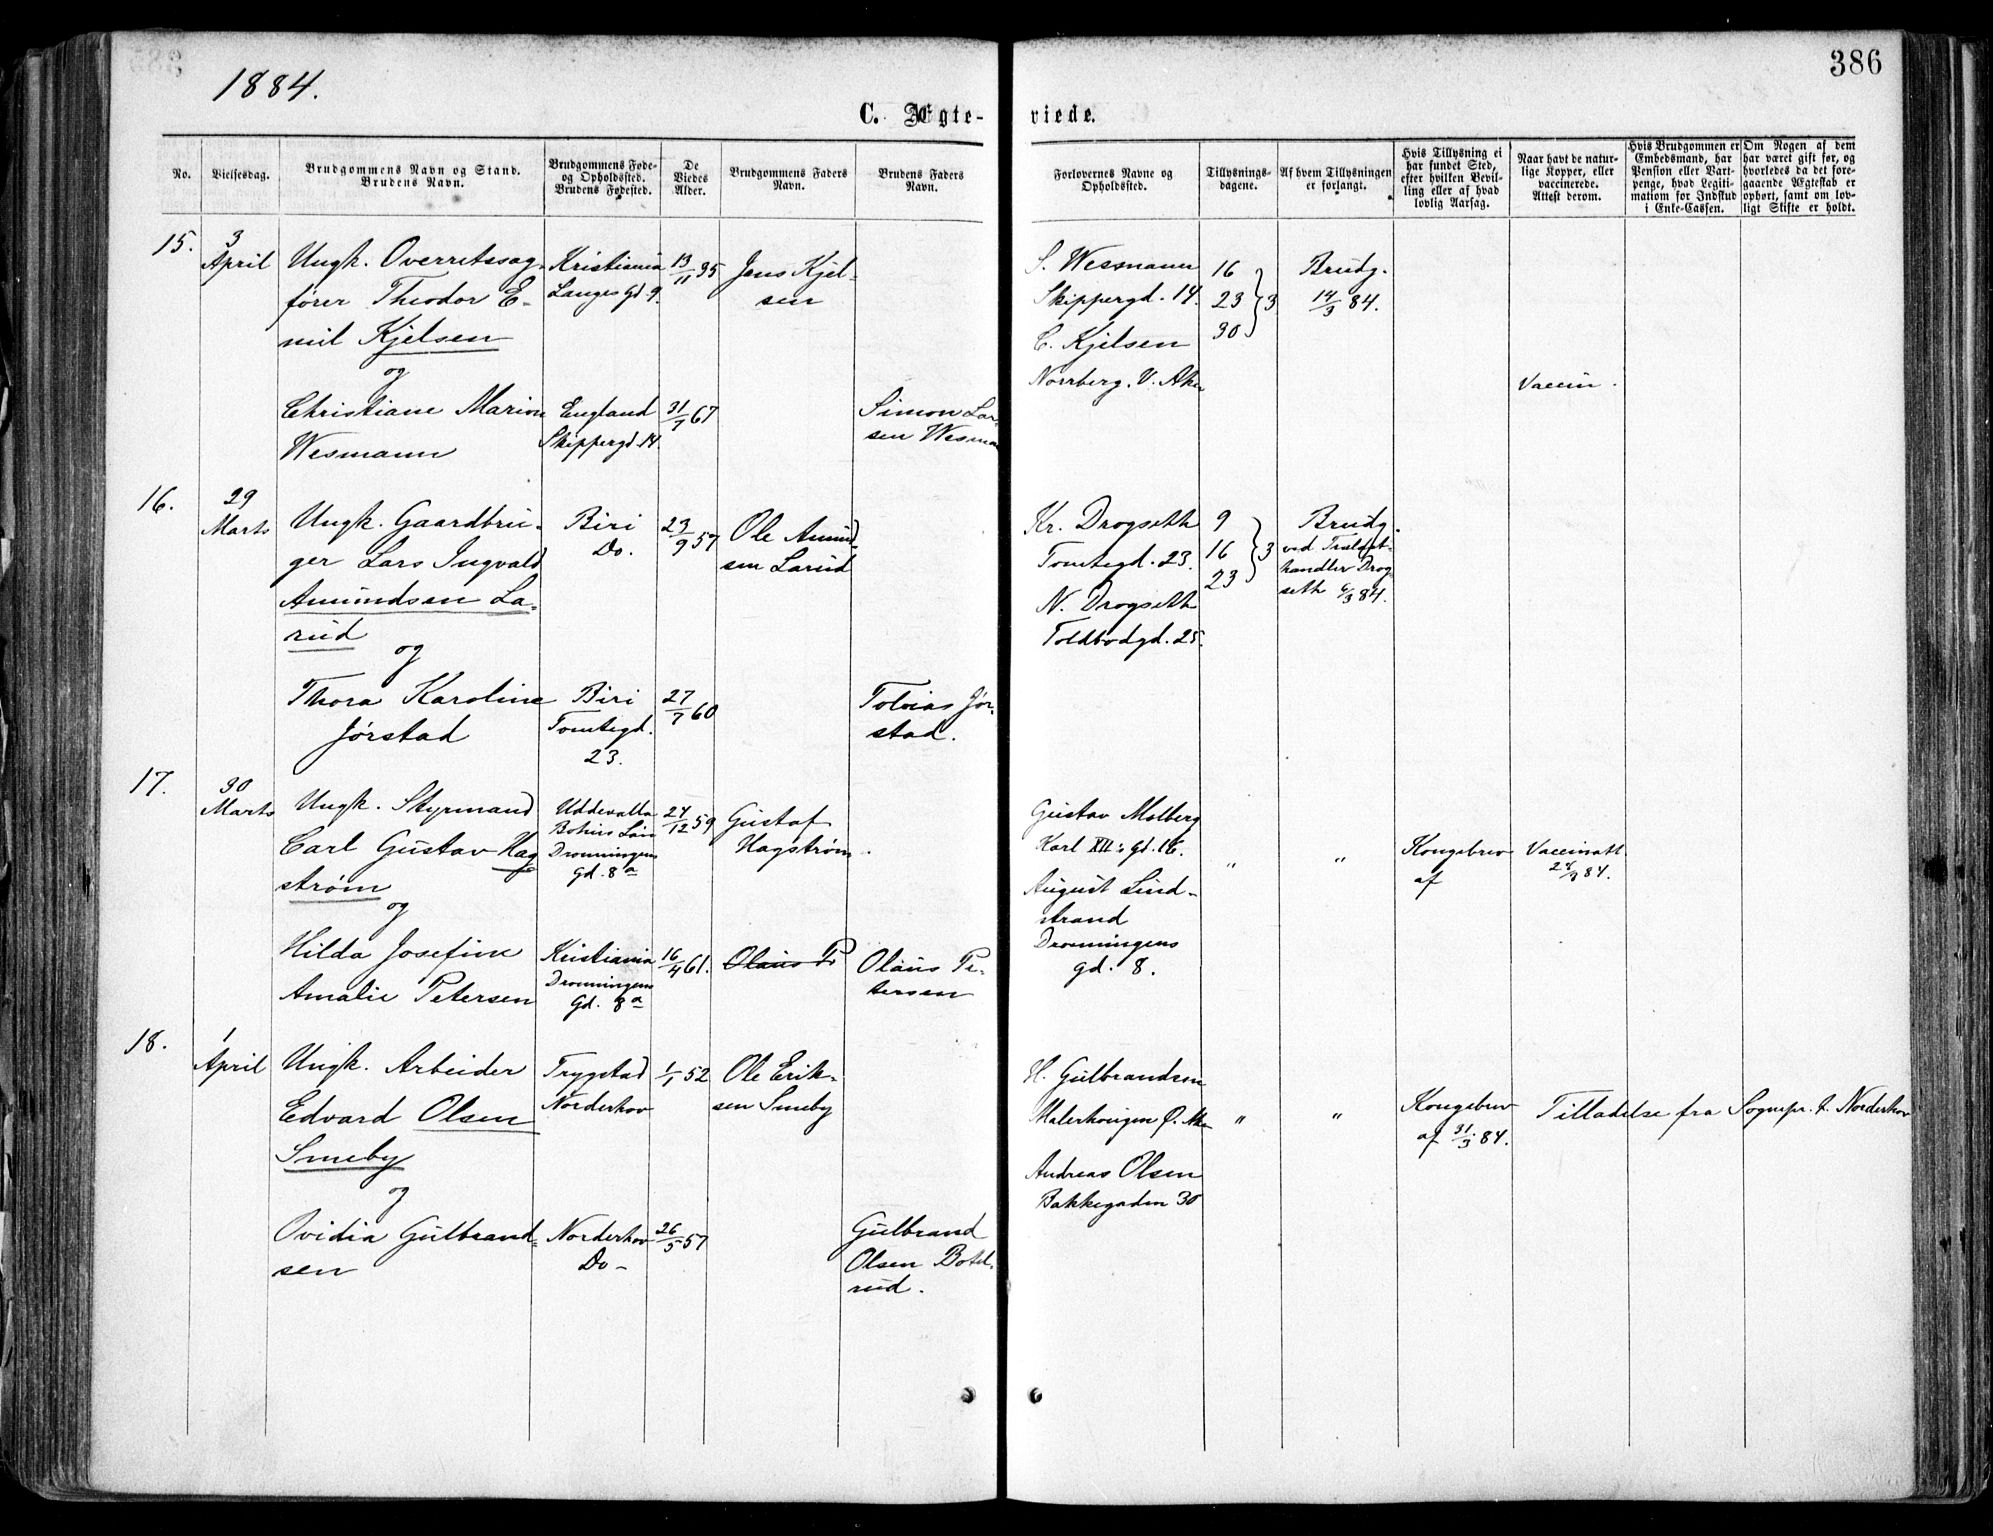 386
1884.
C. Ægte-
viede.
No.
Vielsesdag.
Brudgommens Navn og Stand.
Brudens Navn.
Brudgommens Føde-
og Opholdssted.
Brudens Fødested.
De
Viedes
Alder.
Brudgommens Faders
Navn.
Brudens Faders
Navn.
Forlovernes Navne og
Opholdssted.
Tillysnings-
dagene.
Af hvem Tillysningen
er forlangt.
Hvis Tillysning ei
har fundet Sted,
efter hvilken Bevil-
ling eller af hvad
lovlig Aarsag.
Naar havt de natur-
lige Kopper, eller
vaccinerede.
Attest derom.
Hvis Brudgommen er
Embedsmand, har
Pension eller Vart-
penge, hvad Legiti-
mation for Indskud
i Enke-Cassen.
Om Nogen af dem
har været gift før, og
hvorledes da det fore-
gaaende Ægteskab er
ophørt, samt om lov-
ligt Skifte er holdt.
15.
3
April
Ungk. Overretssag-
fører Theodor E-
mil Kjelsen
og
Christiane Marion
Wesmann
Kristiania
Langes Gd. 9.
England
Skippergd. 14.
13/11 35
31/7 67
Jens Kjel-
sen
Simon Lar-
sen Wesman
S. Wesmann
Skippergd. 14.
C. Kjelsen
Norrberg. V. Aker
16
23 } 3
30
Brudg.
14/3 84.
Vaccin.
16.
29
Marts
Ungk. Gaardbru-
ger Lars Ingvald
Amundsen La-
rud
og
Thora Karoline
Jørstad
Biri
Do.
Biri
Tomtegd.
23.
23/9 57
27/7 60
Ole Amund-
sen Larud
Tobias Jør-
stad.
Kr. Drogseth
Tomtegd. 23.
N. Drogseth
Toldbodgd. 25.
9
16 } 3
23
Brudg.
ved
handler Drog-
seth 6/3 84.
17.
30
Marts
Ungk. Styrmand
Carl Gustav Hag
strøm
og
Hilda Josefine
Amalie Petersen
Uddevalla
Bohus Län
Dronningens
Gd. 8a
Kristiania
Dronningens
Gd. 8a
24/12 59
16/4 61.
Gustaf
Hagstrøm.
Olaus P
Olaus Pe-
tersen
Gustav Molberg
Karl XII's Gd. 16.
August Lind-
strand
Dronningens
gd. 8.
"
"
Kongebrev
af
Vaccinatt.
84.
18.
1
April
Ungk. Arbeider
Edvard Olsen
Smeby
og
Ovidia Gulbrand-
sen
Trygstad
Norderhov
Norderhov
Do -
1/1 52
26/5 57
Ole Erik-
sen Smeby
Gulbrand
Olsen Botel-
rud.
H. Gulbrandsen
Malerhougen Ø. Aker
Andreas Olsen
Bakkegaden 30
"
"
Kongebrev
af 31/3 84.
Tilladelse fra Sognepr. t. Norderhov